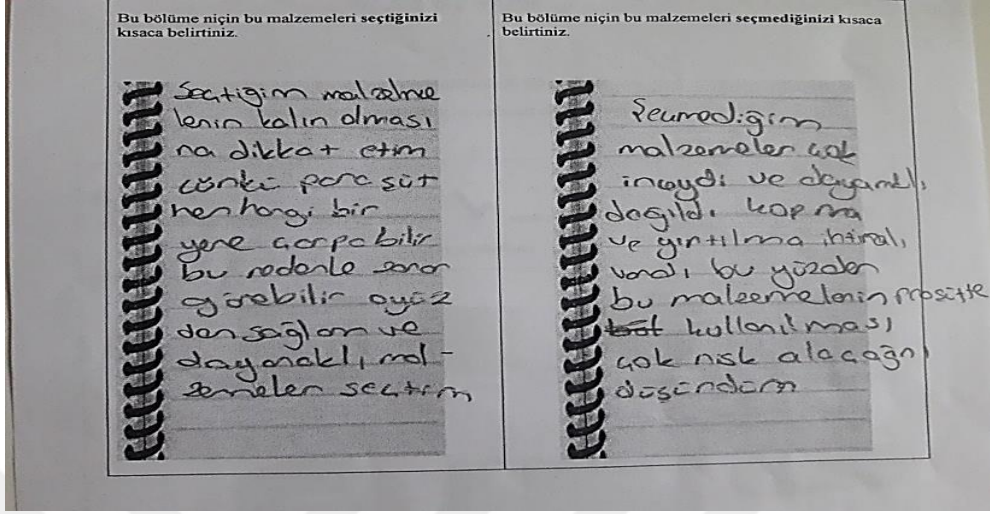 Bu bölüme niçin bu malzemeleri seçtiğinizi
kısaca belirtiniz.
Seçtiğim malzeme
lerin kalın olması
na dikkat etim
çünkü paraşüt
herhangi bir
yere çarpabilir
bu nedenle zarar
görebilir oyüz
den sağlam ve
dayanaklı mal-
zemeler seçtim
Bu bölüme niçin bu malzemeleri seçmediğinizi kısaca
belirtiniz.
Seçmediğim
malzemeler çok
inceydi ve dayanıklı
dağıldı kopma
ve yırtılma ihtimalı
vardı bu yüzden
bu malzemelerin
kullanılması
çok risk alacağnı
düşündüm